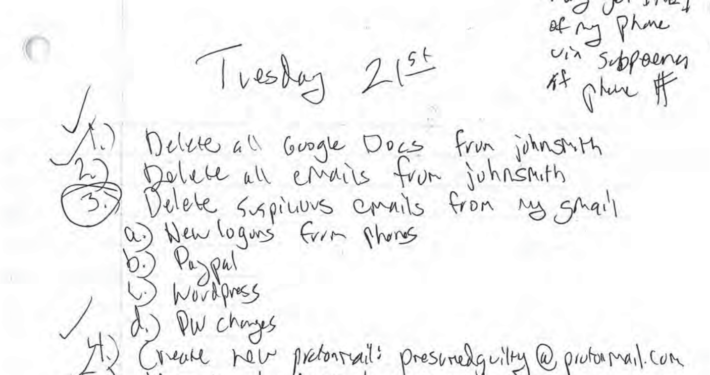 of my phone
via subpoena
if phone #
Tuesday 21st
1.) Delete all Google Docs from johnsmith
2.) Delete all emails from johnsmith
3. Delete suspicious emails from my gmail
a.) New logons from phones
b.) Paypal
c.) Wordpress
d.) PW changes
4.) Create new protonmail: presumedguilty@protonmail.com